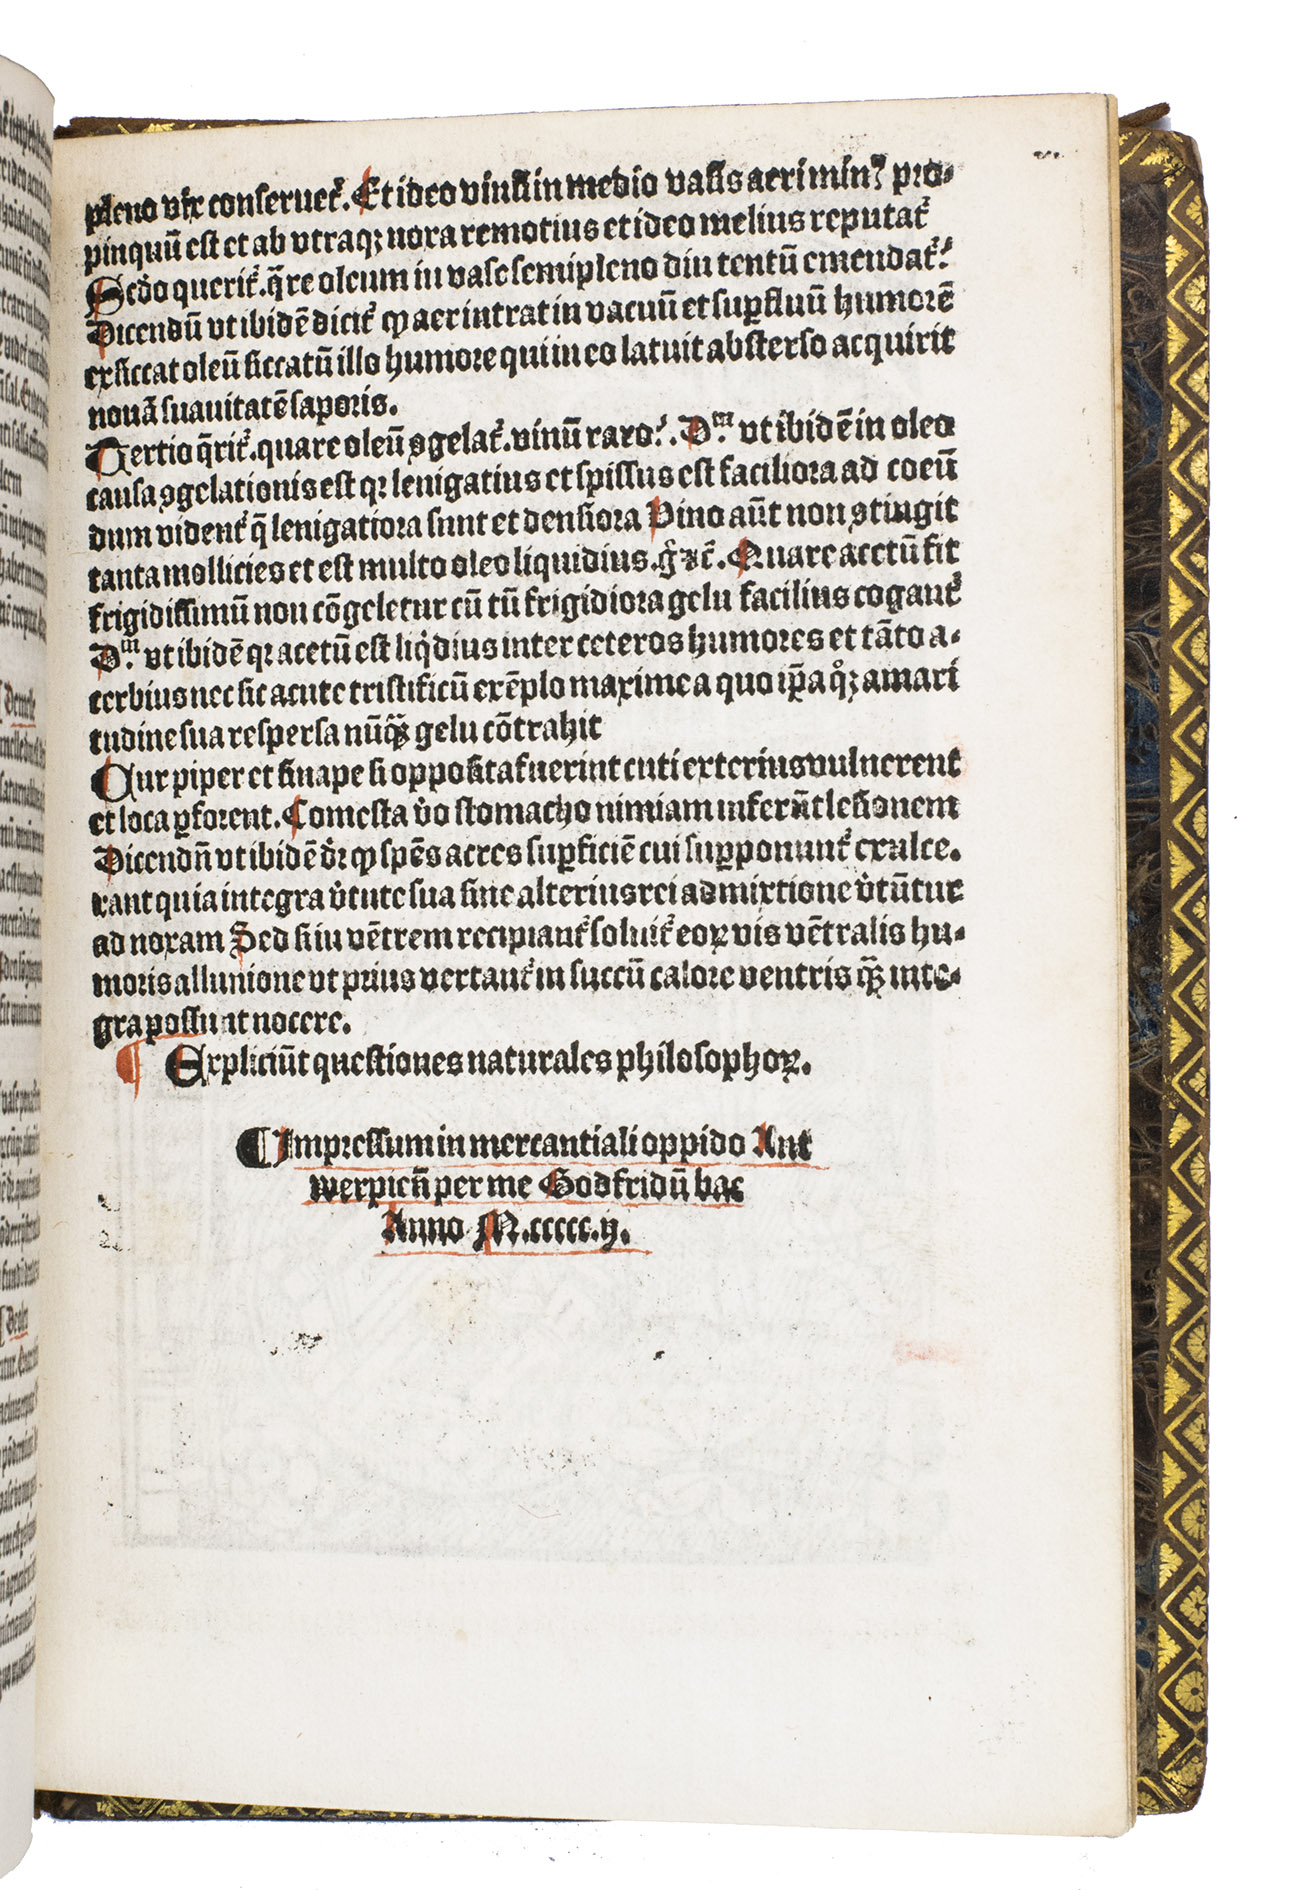 pleno vix conseruet᷑. Et ideo vinũ in medio vasis aeri minꝰ pro-
pinquũ est et ab vtraqꝫ noxa remotius et ideo melius reputat᷑
Secdo querit᷑. q̃re oleum in vase semipleno diu tentũ emendat᷑?
Dicendũ vt ibidẽ dicit᷑ ꝙ aer intrat in vacuũ et suꝑfluũ humorẽ
exsiccat oleũ siccatũ illo humore qui in eo latuit absterso acquirit
nouã suauitatẽ saporis.
Tertio q̃rit᷑. quare oleũ ꝯgelat᷑. vinũ raro?. Dᵐ vt ibidẽ in oleo
causa ꝯgelationis est qꝛ lenigatius et spissus est faciliora ad coeũ
dum vident᷑ q̃ lenigatiora sunt et densiora Vino aũt non ꝯtingit
tanta mollicies et est multo oleo liquidius. g̃ zc̃. Quare acetũ sit
frigidissimũ non cõgeletur cũ tñ frigidiora gelu facilius cogant᷑
Dᵐ vt ibidẽ qꝛ acetũ est liq̇dius inter ceteros humores et tãto a-
cerbius nec sic acute tristificũ exẽplo maxime a quo ip̃a aq̃ amari
tudine sua respersa nũq̃ꝫ gelu cõtrahit
Cur piper et sinape si opposita fuerint cuti exterius vulnerent
et loca ꝑforent. Comesta v̊o stomacho nimiam inferãt lesionem
Dicendũ vt ibidẽ dr̃ ꝙ spẽs acres suꝑficiẽ cui suꝑponunt᷑ exulce-
rant quia integra v̇tute sua sine alterius rei admixtione v̇tũtur
ad noxam Sed si in vẽtrem recipiant᷑ soluit᷑ eoꝝ vis vẽtralis hu-
moris allunione vt prius vertant᷑ in succũ calore ventris q̃ꝫ inte-
gra possunt nocere.
¶ Expliciũt questiones naturales philosophoꝝ.
¶ Impressum in mercantiali oppido Ant
werpieñ per me Godfridũ bac
Anno M.ccccc.ij.